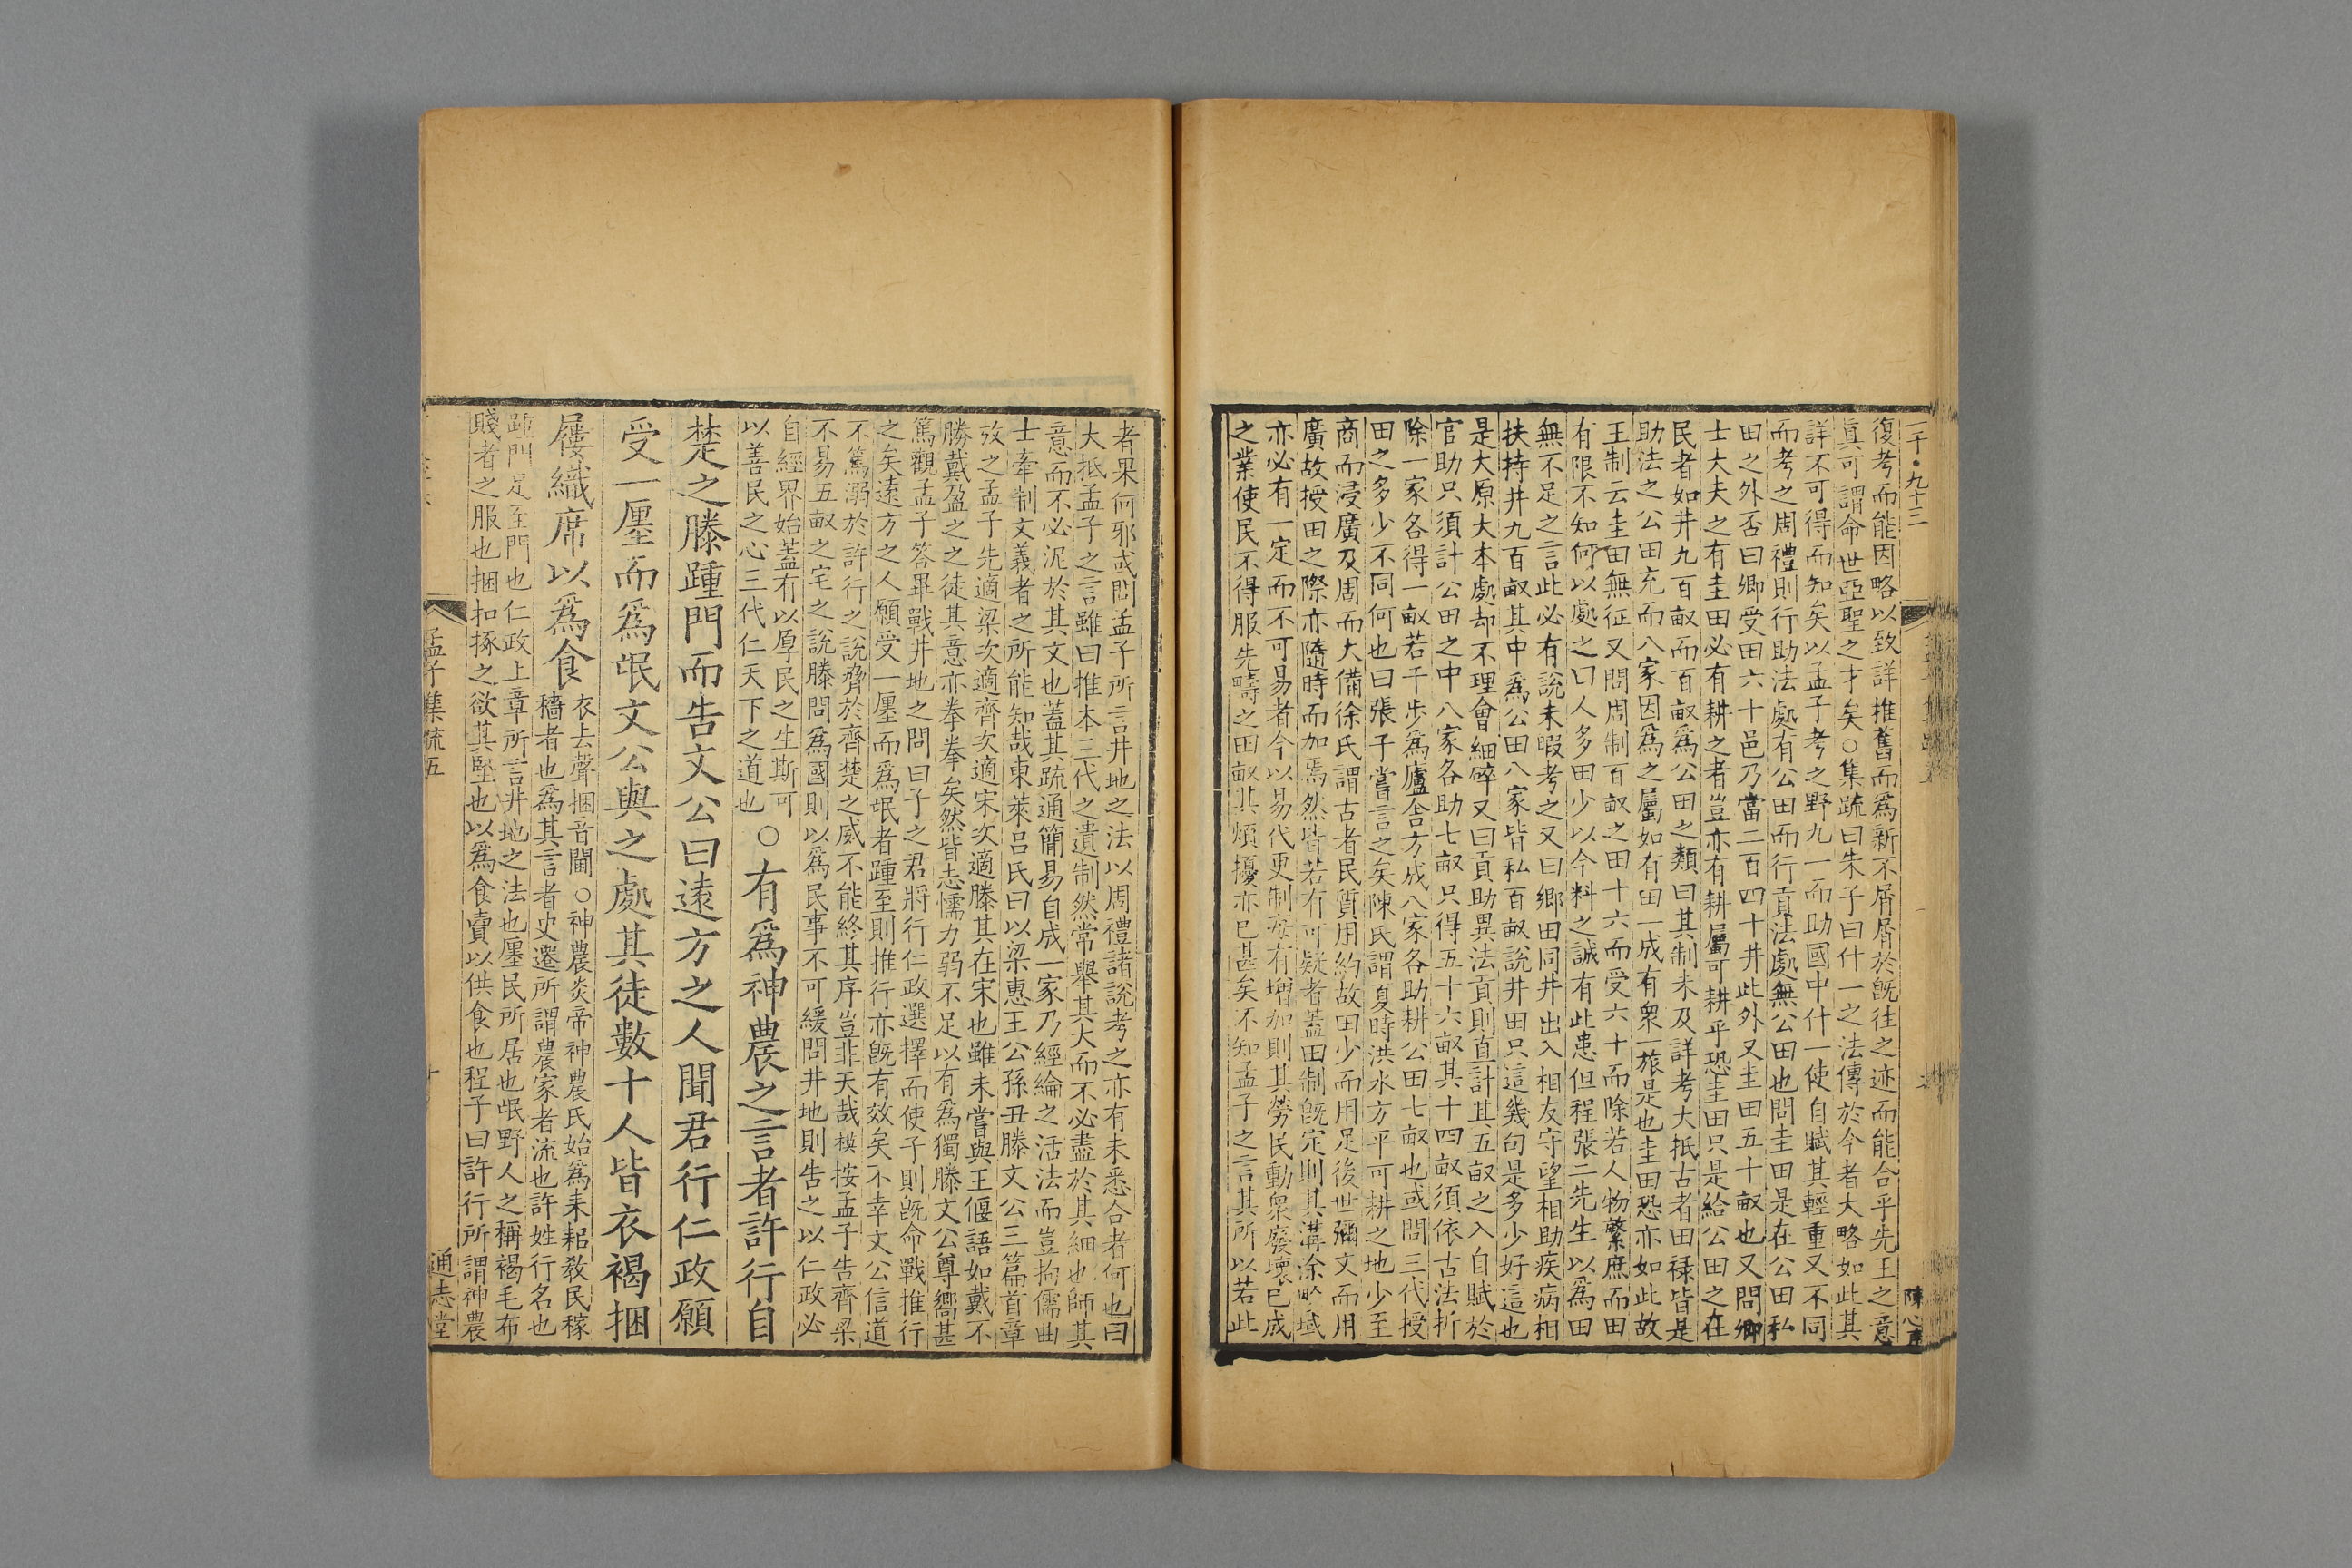 一千·九十三
陳心甫
復考而能因略以致詳推舊而爲新不屑屑於旣往之迹而能合乎先王之意
眞可謂命世亞聖之才矣○集疏曰朱子曰什一之法傳於今者大略如此其
詳不可得而知矣以孟子考之野九一而助國中什一使自賦其輕重又不同
而考之周禮則行助法處有公田而行貢法處無公田也問圭田是在公田私
田之外否曰卿受田六十邑乃當二百四十井此外又圭田五十畝也又問卿
士大夫之有圭田必有耕之者豈亦有耕屬可耕乎恐圭田只是給公田之在
民者如井九百畝而百畝爲公田之類曰其制未及詳考大抵古者田禄皆是
助法之公田充而八家因爲之屬如有田一成有衆一旅是也圭田恐亦如此故
王制云圭田無征又問周制百畝之田十六而受六十而除若人物繁庶而田
有限不知何以處之曰人多田少以今料之誠有此患但程張二先生以爲田
無不足之言此必有說未暇考之又曰鄉田同井出入相友守望相助疾病相
扶持井九百畝其中爲公田八家皆私百畝說井田只這幾句是多少好這也
是大原大本處却不理會細碎又曰貢助異法貢則直計其五畝之入自賦於
官助只須計公田之中八家各助七畝只得五十六畝其十四畝須依古法折
除一家各得一畝若干步爲廬舍方成八家各助耕公田七畝也或問三代授
田之多少不同何也曰張子嘗言之矣陳氏謂夏時洪水方平可耕之地少至
商而浸廣及周而大備徐氏謂古者民質用約故田少而用足後世彌文而用
廣故授田之際亦隨時而加焉然皆若有可疑者蓋田制旣定則其溝涂畛域
亦必有一定而不可易者今以易代更制每有增加則其勞民動衆廢壞已成
之業使民不得服先疇之田畝其煩擾亦已甚矣不知孟子之言其所以若此
者果何邪或問孟子所言井地之法以周禮諸說考之亦有未悉合者何也曰
大抵孟子之言雖曰推本三代之遺制然常舉其大而不必盡於其細也師其
意而不必泥於其文也蓋其疏通簡易自成一家乃經綸之活法而豈拘儒曲
士牽制文義者之所能知哉東萊呂氏曰以梁惠王公孫丑滕文公三篇首章
攷之孟子先適梁次適齊次適宋次適滕其在宋也雖未嘗與王偃語如戴不
勝戴盈之之徒其意亦拳拳矣然皆志懦力弱不足以有爲獨滕文公尊嚮甚
篤觀孟子答畢戰井地之問曰子之君將行仁政選擇而使子則旣命戰推行
之矣遠方之人願受一廛而爲氓者踵至則推行亦旣有效矣不幸文公信道
不篤溺於許行之說脅於齊楚之威不能終其序豈非天哉模按孟子告齊梁
不易五畝之宅之說滕問爲國則以爲民事不可緩問井地則告之以仁政必
自經界始蓋有以厚民之生斯可
以善民之心三代仁天下之道也
○有爲神農之言者許行自
楚之滕踵門而告文公曰遠方之人聞君行仁政願
受一廛而爲氓文公與之處其徒數十人皆衣褐捆
屨織席以爲食
衣去聲捆音閫○神農炎帝神農氏始爲耒耜敎民稼
穡者也爲其言者史遷所謂農家者流也許姓行名也
踵門足至門也仁政上章所言井地之法也廛民所居也氓野人之稱褐毛布
賤者之服也捆扣㧻之欲其堅也以爲食賣以供食也程子曰許行所謂神農
孟子集疏五
通志堂